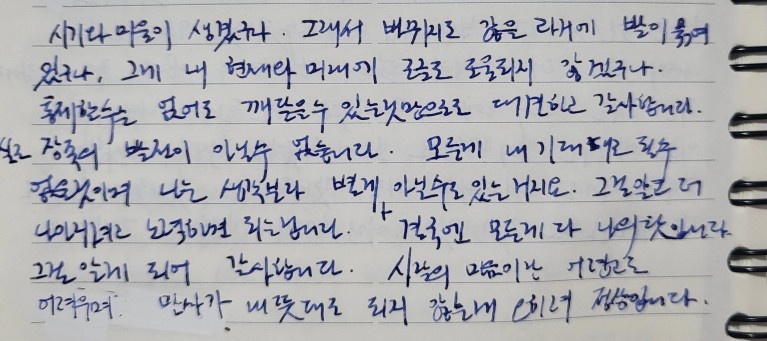 시기와 미움이 생겼구나. 그래서 바뀌지도 않은 과거에 발이 묶여
있구나, 그게 내 현재와 미래에 도움도 되지 않겠구나.
통제할수는 없어도 깨달을수 있는것만으로도 대견하고 감사합니다.
실로 장족의 발전이 아닐수 없습니다. 모든게 내 기대대로 될수
없는것이며 나는 생각보다 별게 아닐수도 있는 거지요. 그걸알고 더
나아지려고 노력하면 되는겁니다. 결국엔 모든게 다 나의 탓입니다
그걸 알게 되어 감사합니다. 사람의 마음이란 어렵고도
어려우며. 만사가 내 뜻대로 되지 않는게 오히려 정상입니다.